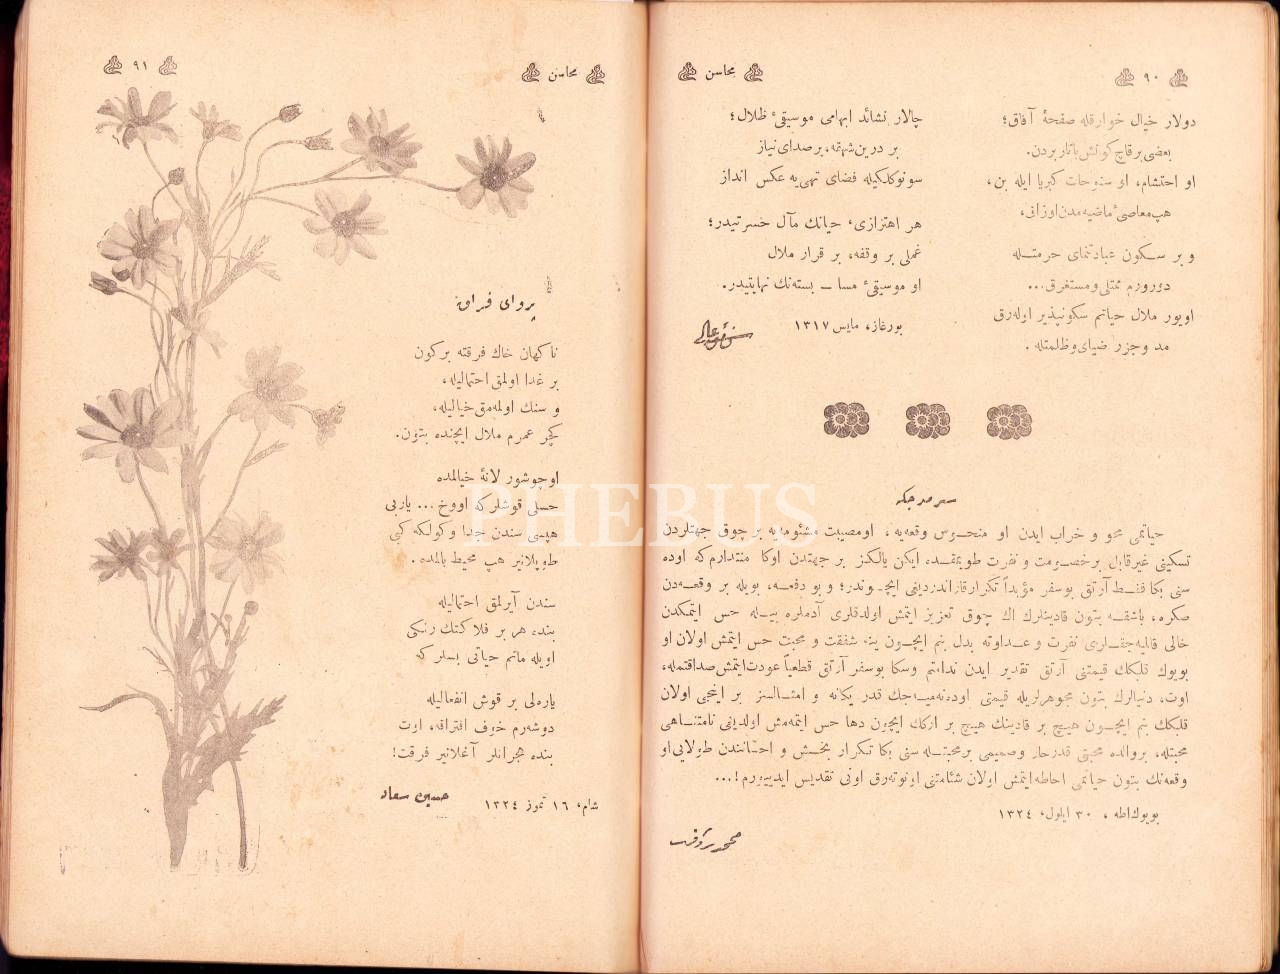 ٩٠
محاسن
دولار خيال خوارقله صفحهٔ آفاق؛
بعضى بر قاچ كونش باتار بردن.
او احتشام، او سنوحات كبريا ايله بن،
هپ معاصىٔ ماضيه مدن اوزاق،
و بر سكون عبادتنماى حرمتله
دورورم ممتلى و مستغرق...
اويور ملال حياتم سكونپذير اوله‌رق
مد و جزر ضياى و ظلمتله .
چالار نشائد ابهامى موسيقىٔ ظلال؛
بر درين شهقه، بر صداى نياز
سونوكلكيله فضاى تهى‌يه عكس انداز
هر اهتزازى، حياتك مآل خسرتيدر؛
غملى بر وقفه، بر قرار ملال
او موسيقىٔ مسا ـ بسته‌نك نهايتيدر.
بورغاز، مايس ١٣١٧
سرمد جكه
حياتمى محو و خراب ايدن او منحوس وقعه‌يه، او مصيبت مشئومه‌يه بر چوق جهتلردن
تسكينى غيرقابل بر خصومت و نفرت طويمقده ايكن يالكز بر جهتدن اوكا منتدارم كه اوده
سنى بكا فقط آرتق بوسفر مؤبداً تكرار قازانديرديغى ايچوندر؛ و بو دفعه، بويله بر وقعه‌دن
صكره، باشقه بتون قادينلرك اك چوق تعزيز ايتمش اولدقلرى آدملره بيله حس ايتمكدن
خالى قالميه‌جقلرى نفرت و عداوته بدل بنم ايچون ينه شفقت و محبت حس ايتمش اولان او
بويوك قلبكك قيمتنى آرتق تقدير ايدن ندامتم و سكا بوسفر آرتق قطعياً عودت ايتمش صداقتمله،
اوت، دنيالرك بتون مجوهرلريله قيمتى اودنه‌ميه‌جك قدر يكانه و امثالسز بر اينجى اولان
قلبكك بنم ايچون هيچ بر قادينك هيچ بر اركك ايچون دها حس ايتمه‌مش اولديغى نامتناهى
محبتله، پروانده محبتى قدر حار و صميمى بر محبتله سنى بكا تكرار بخش و احسانندن طولايى او
وقعه‌نك بتون حياتمى احاطه ايتمش اولان شئامتنى اونوته‌رق اونى تقديس ايدييورم!...
بويوك‌اطه ، ٣٠ ايلول، ١٣٢٤
محمد رؤف
محاسن
٩١
پرواى فراق
ناكهان خاك فرقته بركون
بر غدا اولمق احتماليله،
و سنك اولمه‌مق خياليله،
كچر عمرم ملال ايچنده بتون.
اوچوشور لانهٔ خيالمده
حسلى قوشلر كه اووخ... ياربى
هپسى سندن جدا و كولكه كبى
طوپلانير هپ محيط بالمده .
سندن آيرلمق احتماليله
بنده هر بر فلاكتك رنكى
اويله ماتم حياتى بسلر كه
ياره‌لى بر قوش انفعاليله
دوشه‌رم خوف افتراقه، اوت
بنده هجرانلر آغلانير فرقت!
شام، ١٦ تموز ١٣٢٤
حسين سعاد
PHEBUS